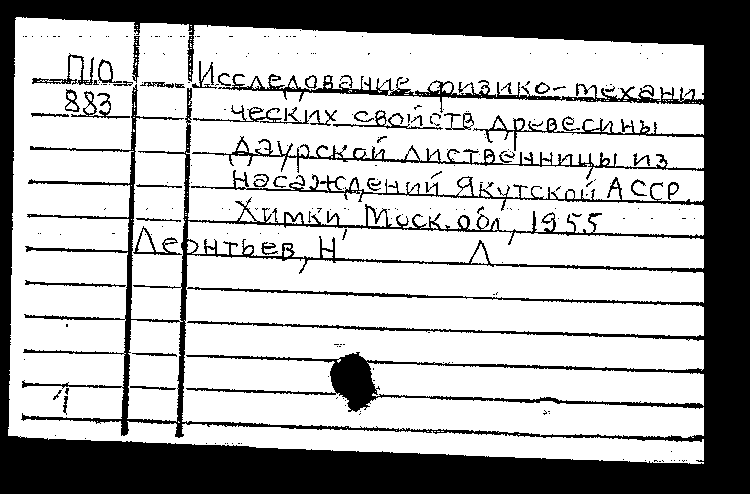 П10 Исследование физико-механи-
883 ческих свойств древесины
даурской лиственницы из
насаждений Якутской АССР.
Химки, Моск. обл, 1955
Леонтьев, Н Л
1